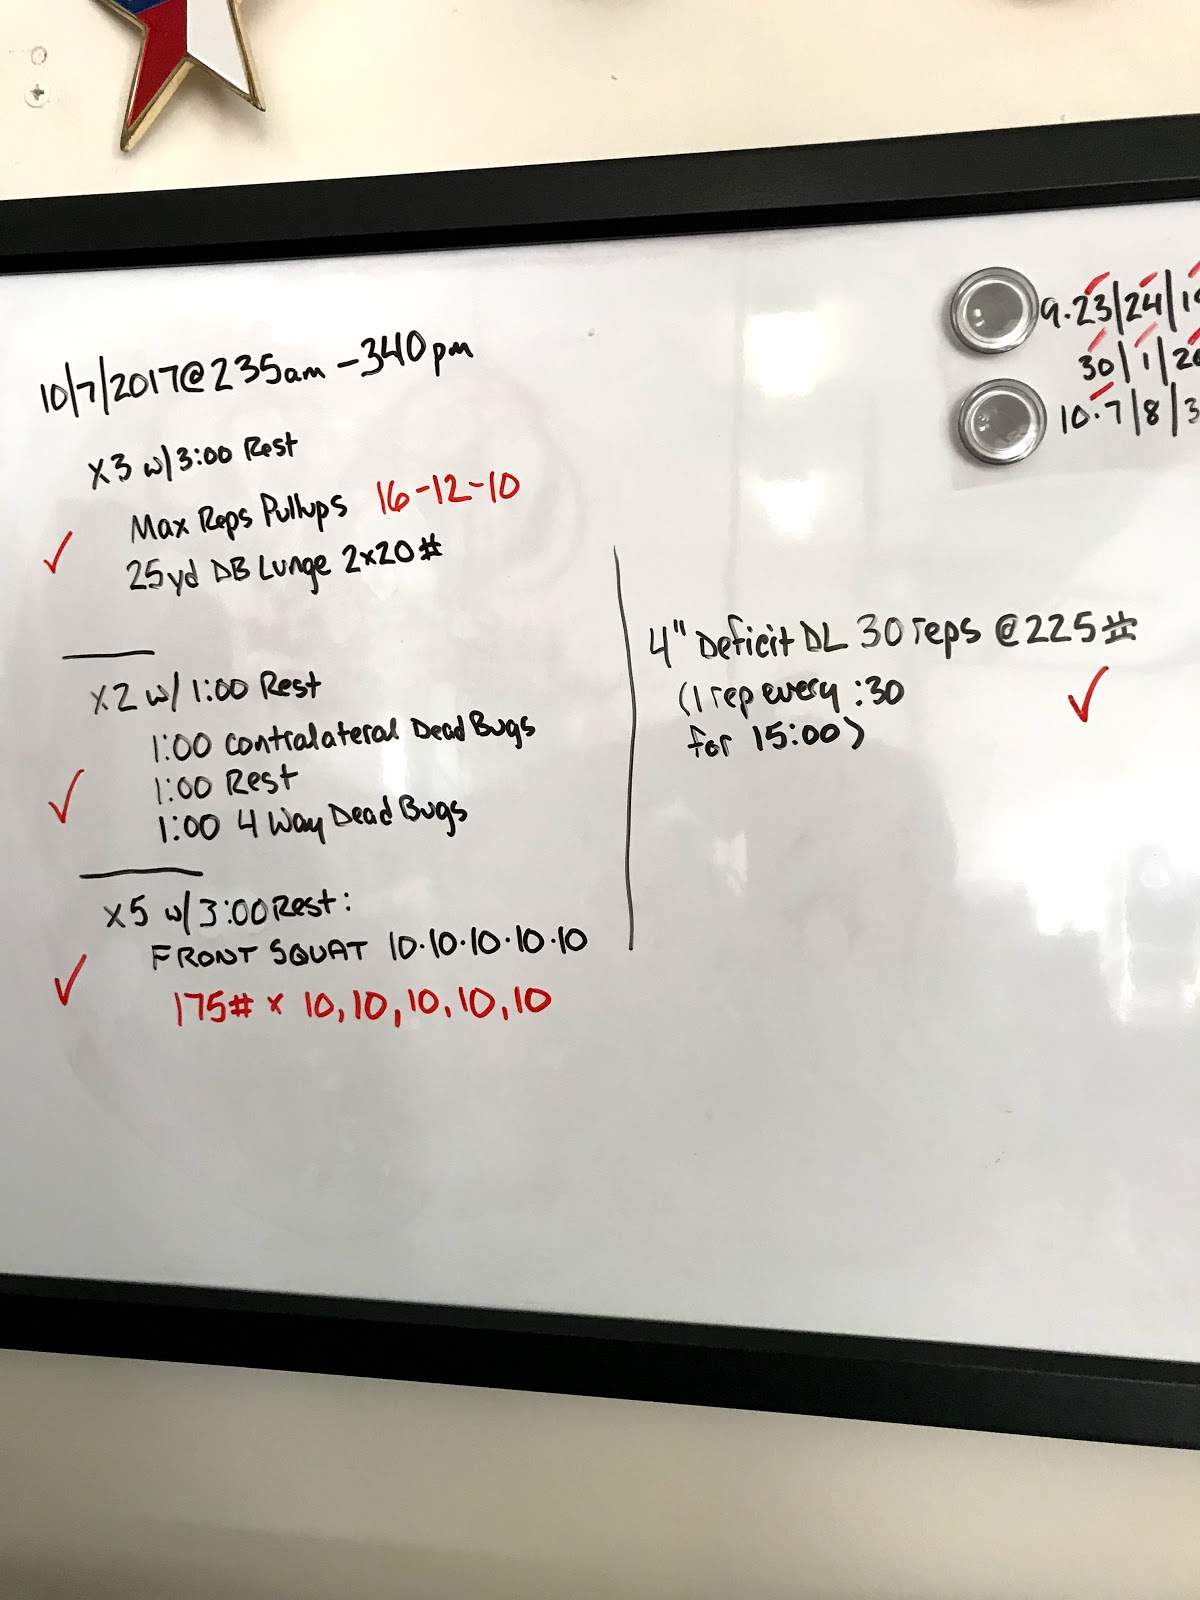 10/7/2017@235am-340pm
x3 w/3:00 Rest
Max Reps Pullups 16-12-10
25yd DB Lunge 2x20#
x2 w/ 1:00 Rest
1:00 Contralateral Dead Bugs
1:00 Rest
1:00 4 Way Dead Bugs
x5 w/3:00 Rest:
FRONT SQUAT 10·10·10·10·10
175# x 10, 10, 10, 10, 10
4" Deficit DL 30 reps @225#
(1 rep every :30
for 15:00)
9.23/24/
30/1/
10.7/8/3